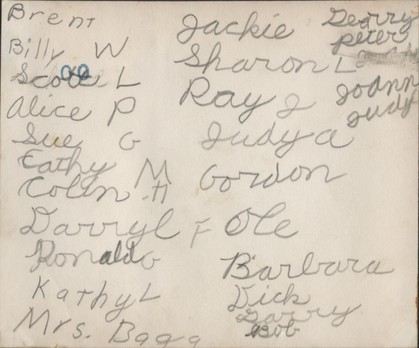 Brent
Billy W
Scott L
Alice P
Sue G
Cathy M
Colin H
Darryl F
Ronald G
Kathy L
Mrs. Bagg
Jackie
Sharon L
Ray J
Judy a
Gordon
Ole
Barbara
Dick
Garry
Bob
Gerry
Peter
Joann
Judy